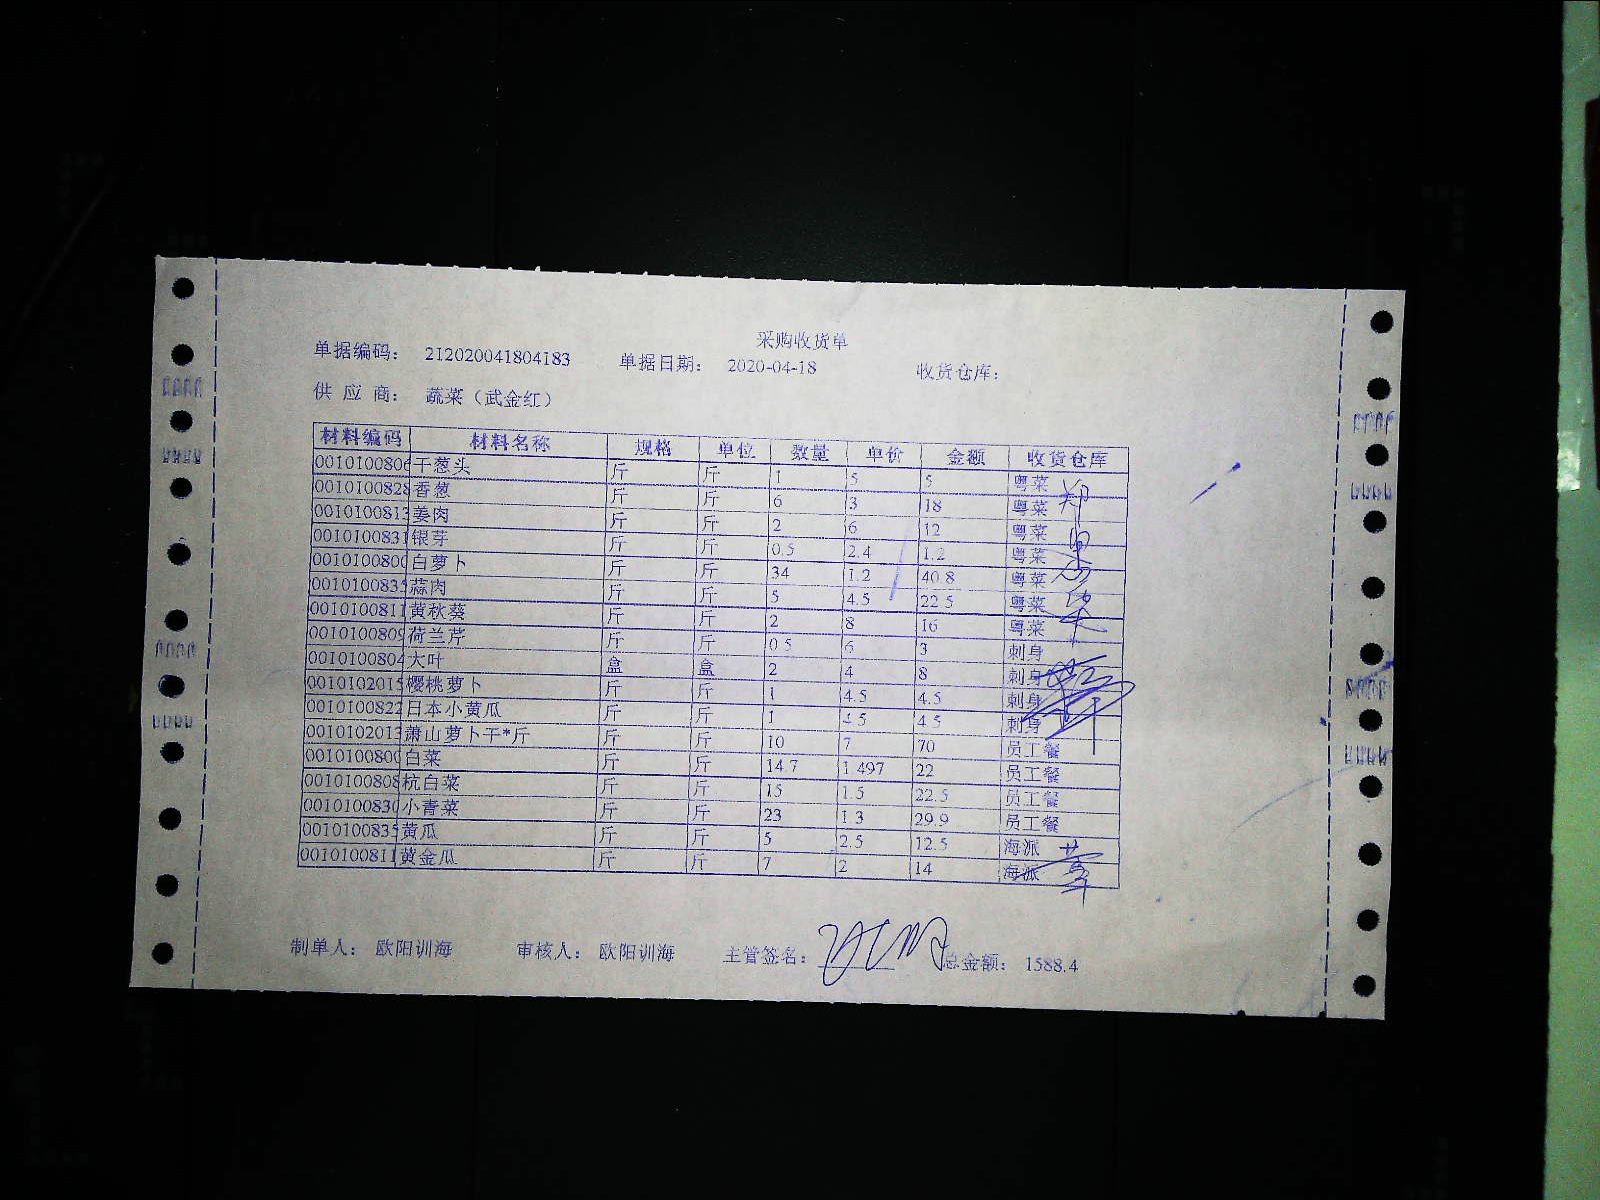 采购收货单
单据编码： 212020041804183 单据日期： 2020-04-18 收货仓库：
供 应 商： 蔬菜（武金红）
材料编码 材料名称 规格 单位 数量 单价 金额 收货仓库
0010100806 干葱头 斤 斤 1 5 5 粤菜
0010100828 香葱 斤 斤 6 3 18 粤菜
0010100813 姜肉 斤 斤 2 6 12 粤菜
0010100831 银芽 斤 斤 0.5 2.4 1.2 粤菜
0010100800 白萝卜 斤 斤 34 1.2 40.8 粤菜
0010100835 蒜肉 斤 斤 5 4.5 22.5 粤菜
0010100811 黄秋葵 斤 斤 2 8 16 粤菜
0010100809 荷兰芹 斤 斤 0.5 6 3 刺身
0010100804 大叶 盒 盒 2 4 8 刺身
0010102015 樱桃萝卜 斤 斤 1 4.5 4.5 刺身
0010100822 日本小黄瓜 斤 斤 1 4.5 4.5 刺身
0010102013 萧山萝卜干*斤 斤 斤 10 7 70 员工餐
0010100800 白菜 斤 斤 14.7 1.497 22 员工餐
0010100808 杭白菜 斤 斤 15 1.5 22.5 员工餐
0010100830 小青菜 斤 斤 23 1.3 29.9 员工餐
0010100835 黄瓜 斤 斤 5 2.5 12.5 海派
0010100811 黄金瓜 斤 斤 7 2 14 海派
制单人： 欧阳训海 审核人： 欧阳训海 主管签名： 总金额： 1588.4